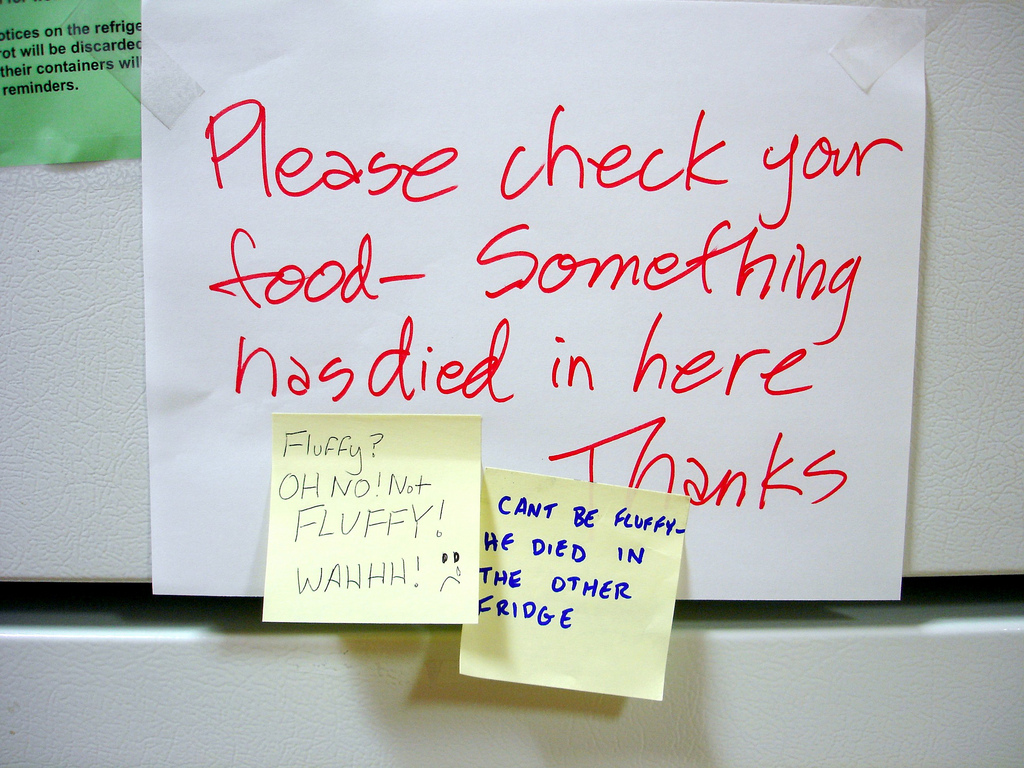 otices on the refrige
ot will be discarded
their containers wil
reminders.
Please check your
food- Something
has died in here
Thanks
Fluffy?
OH NO! Not
FLUFFY!
WAHHH!
CANT BE FLUFFY-
HE DIED IN
THE OTHER
FRIDGE